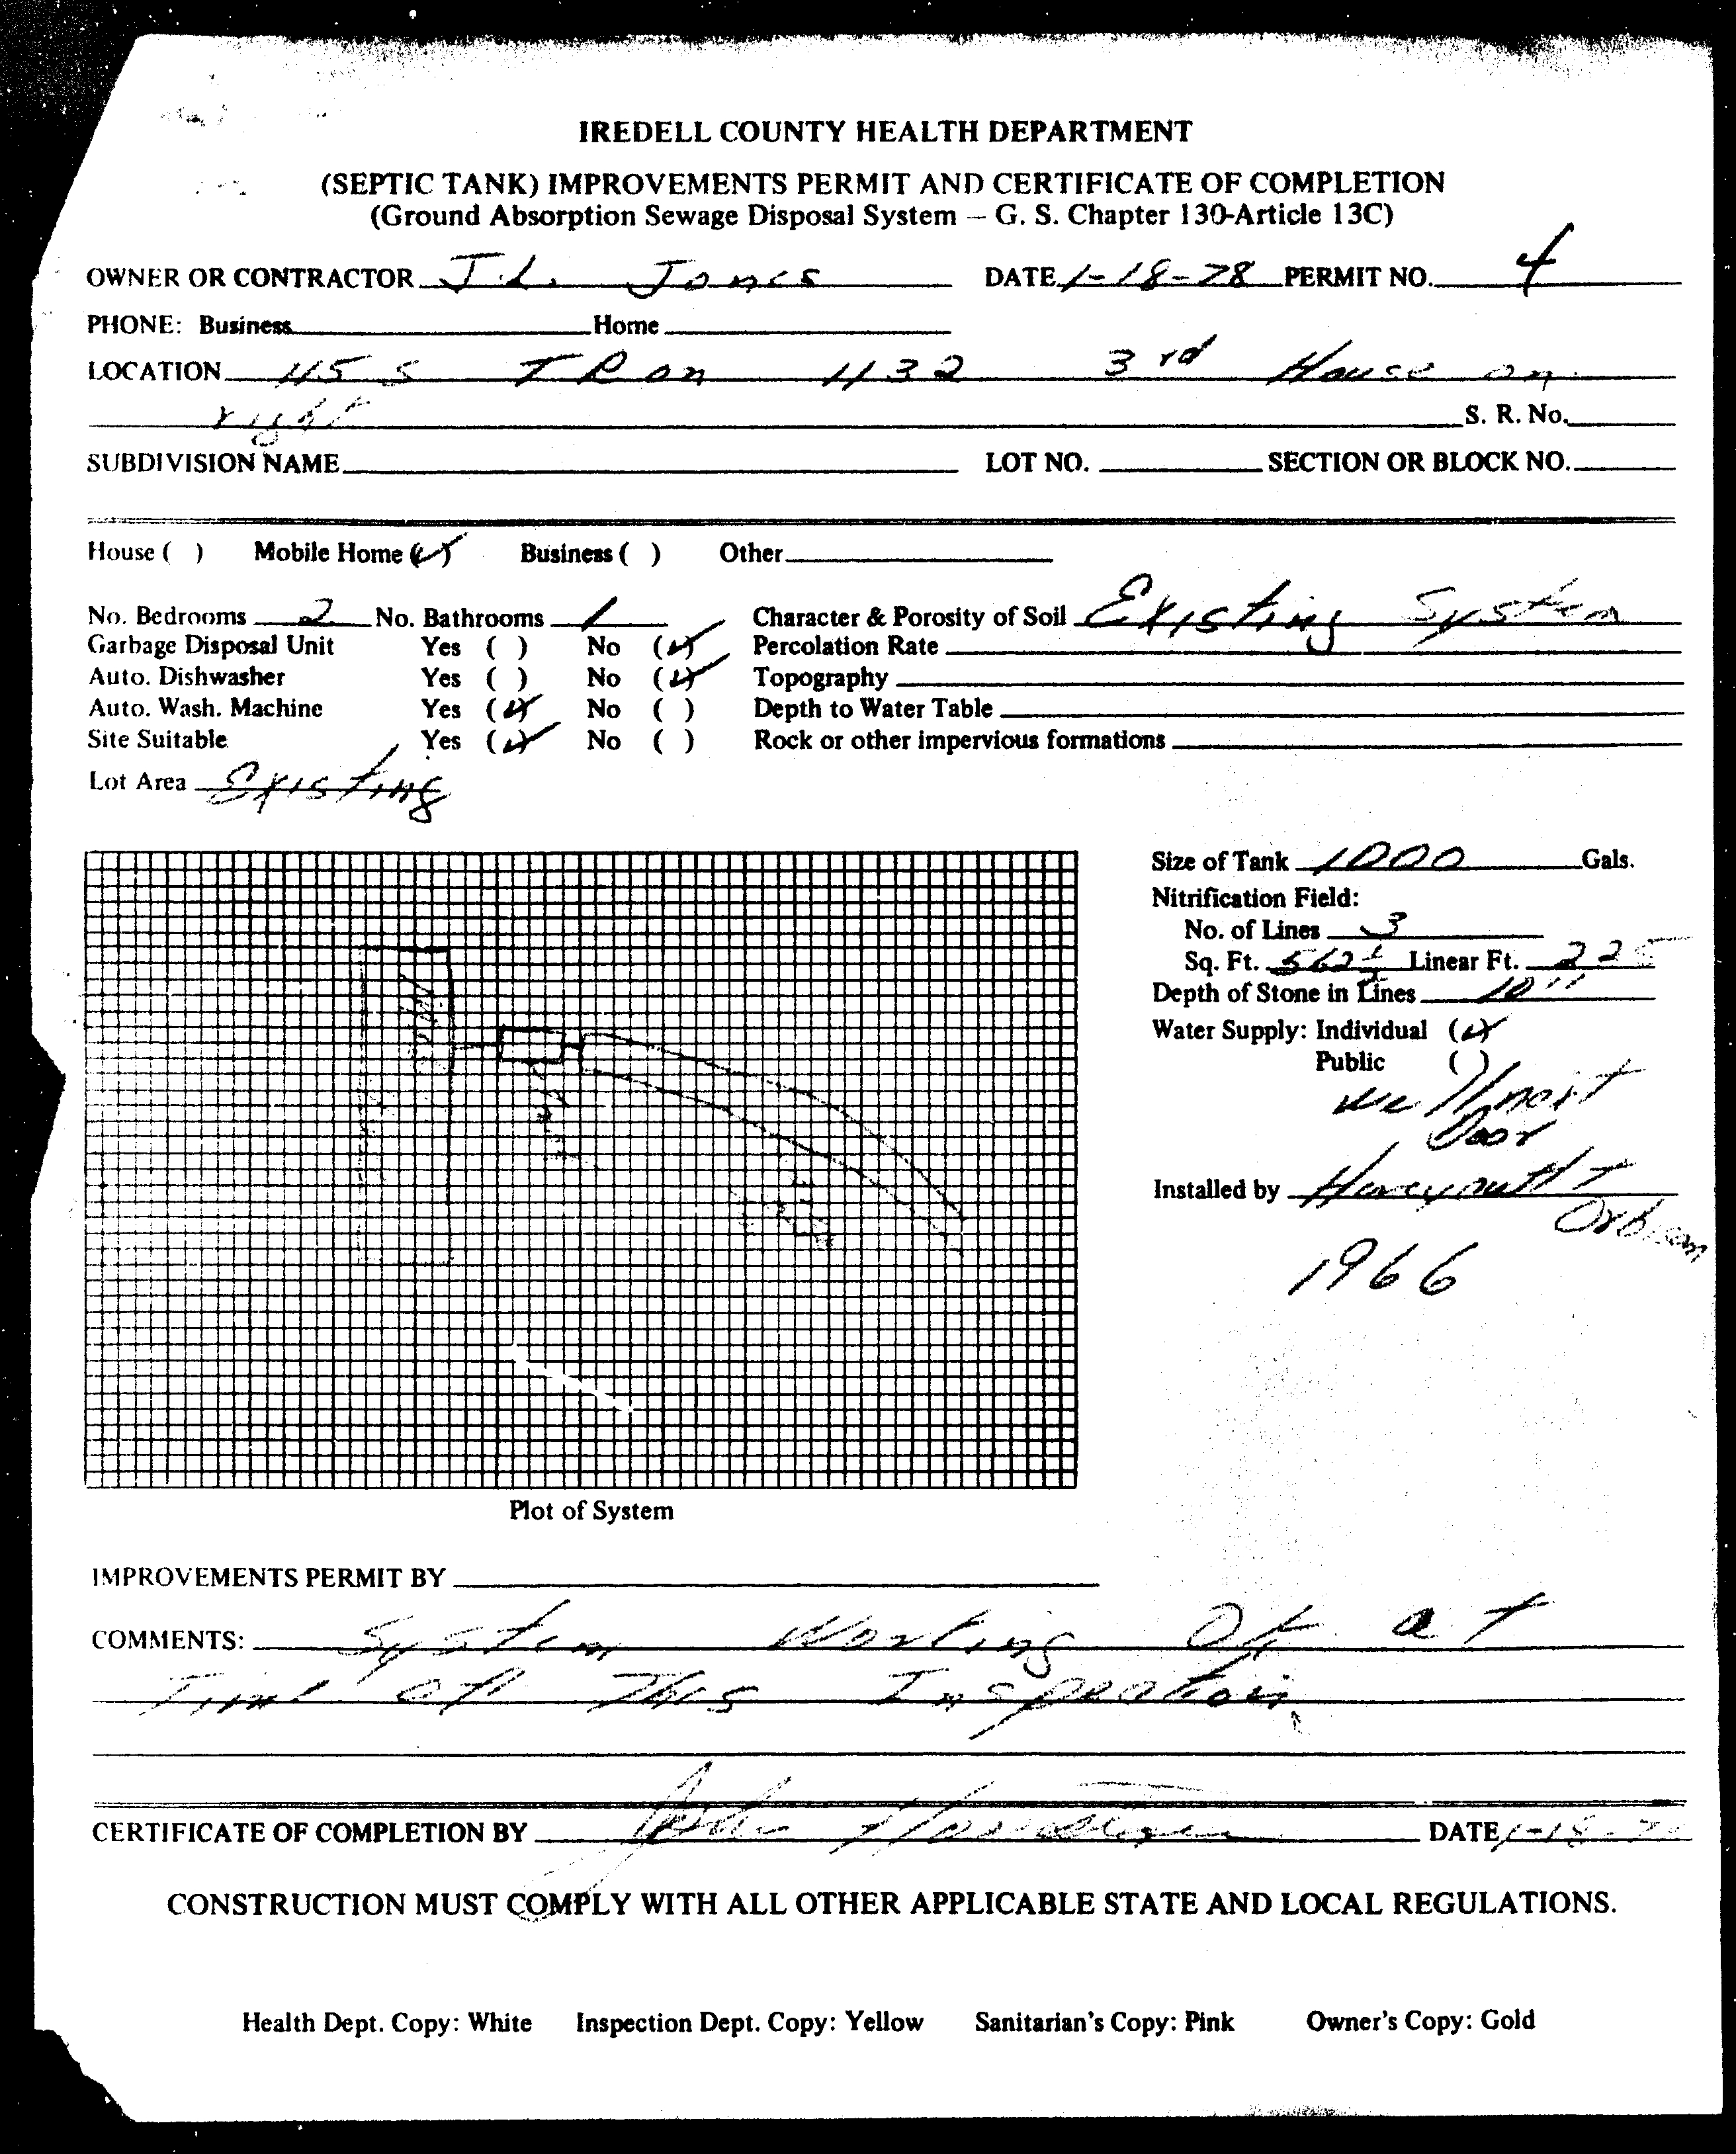 IREDELL COUNTY HEALTH DEPARTMENT
(SEPTIC TANK) IMPROVEMENTS PERMIT AND CERTIFICATE OF COMPLETION
(Ground Absorption Sewage Disposal System – G. S. Chapter 130-Article 13C)
OWNER OR CONTRACTOR J.L. Jones DATE 1-18-78 PERMIT NO. 4
PHONE: Business Home
LOCATION 115 S T R on 1132 3rd House on
right S. R. No.
SUBDIVISION NAME LOT NO. SECTION OR BLOCK NO.
House ( ) Mobile Home (✓) Business ( ) Other
No. Bedrooms 2 No. Bathrooms 1 Character & Porosity of Soil Existing System
Garbage Disposal Unit Yes ( ) No (✓) Percolation Rate
Auto. Dishwasher Yes ( ) No (✓) Topography
Auto. Wash. Machine Yes (✓) No ( ) Depth to Water Table
Site Suitable Yes (✓) No ( ) Rock or other impervious formations
Lot Area Existing
Size of Tank 1000 Gals.
Nitrification Field:
No. of Lines 3
Sq. Ft. 562½ Linear Ft. 225
Depth of Stone in Lines 10"
Water Supply: Individual (✓)
Public ( )
well next
Door
Installed by
1966
Plot of System
IMPROVEMENTS PERMIT BY
COMMENTS: System Working OK at
Time of This Inspection
CERTIFICATE OF COMPLETION BY John DATE 1-18-78
CONSTRUCTION MUST COMPLY WITH ALL OTHER APPLICABLE STATE AND LOCAL REGULATIONS.
Health Dept. Copy: White Inspection Dept. Copy: Yellow Sanitarian's Copy: Pink Owner's Copy: Gold